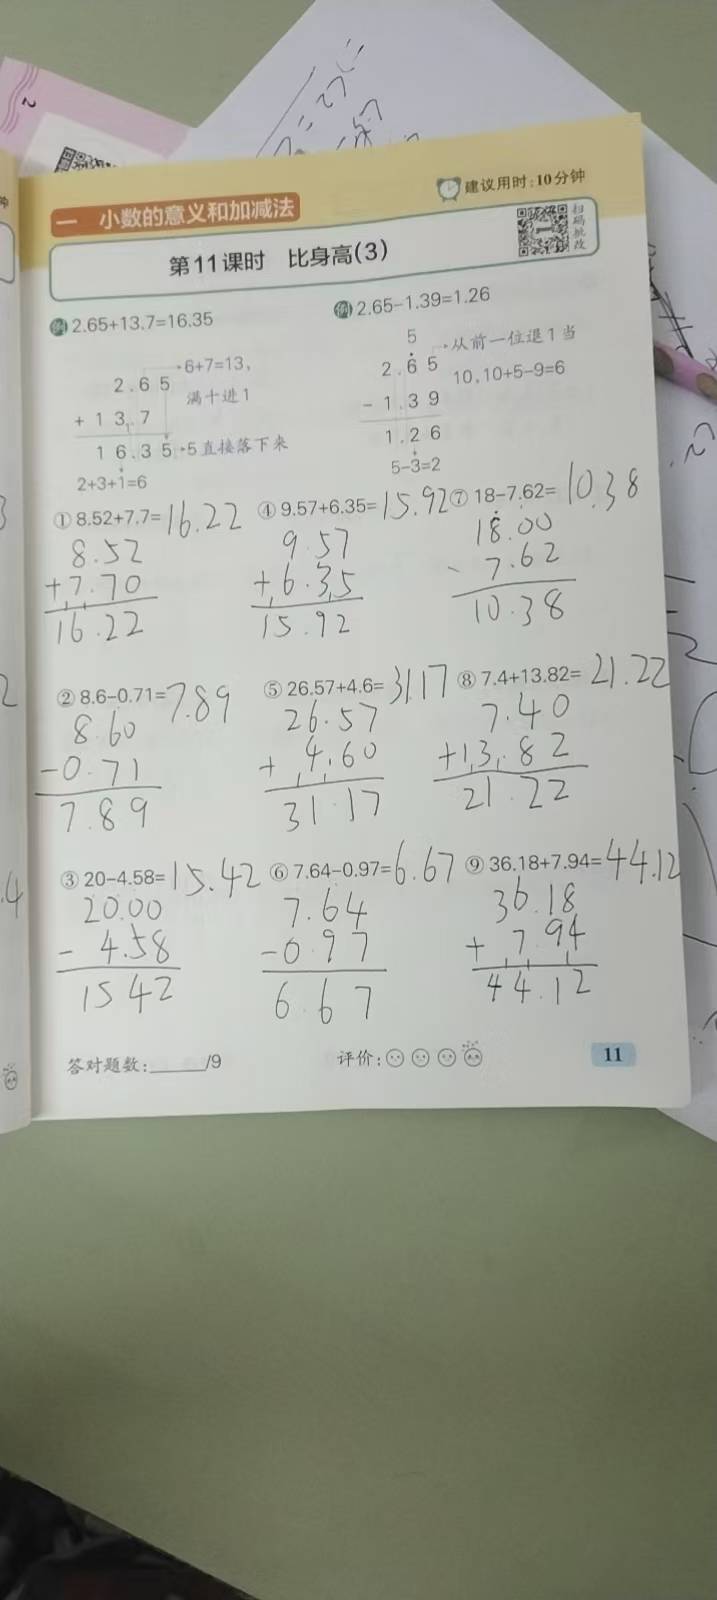 建议用时:10分钟
一 小数的意义和加减法
扫码批改
第11课时 比身高(3)
例 2.65+13.7=16.35
6+7=13,
满十进1
2.65
+13.7
16.35
5直接落下来
2+3+1=6
例 2.65-1.39=1.26
5
从前一位退1当
10,10+5-9=6
2.65
-1.39
1.26
5-3=2
① 8.52+7.7=16.22
8.52
+7.70
16.22
④ 9.57+6.35=15.92
9.57
+6.35
15.92
⑦ 18-7.62=10.38
18.00
-7.62
10.38
② 8.6-0.71=7.89
8.60
-0.71
7.89
⑤ 26.57+4.6=31.17
26.57
+4.60
31.17
⑧ 7.4+13.82=21.22
7.40
+13.82
21.22
③ 20-4.58=15.42
20.00
-4.58
15 42
⑥ 7.64-0.97=6.67
7.64
-0.97
6.67
⑨ 36.18+7.94=44.12
36.18
+7.94
44.12
答对题数:______/9
评价:
11